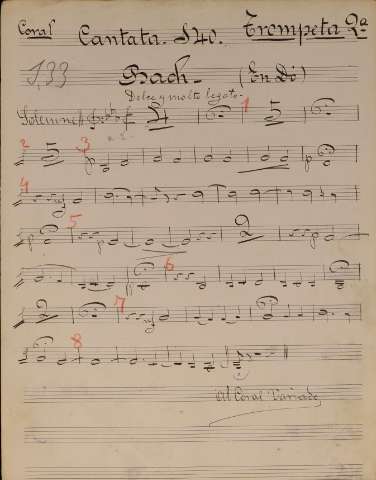 Coral Cantata. 140. Trompeta 2ª
133 Bach- (En Dó)
Dolce y molto legato-
Solemne 4 1 5
2 5 3 p p
4
p 5 2 p
6
2 7
8
Al Coral Variado